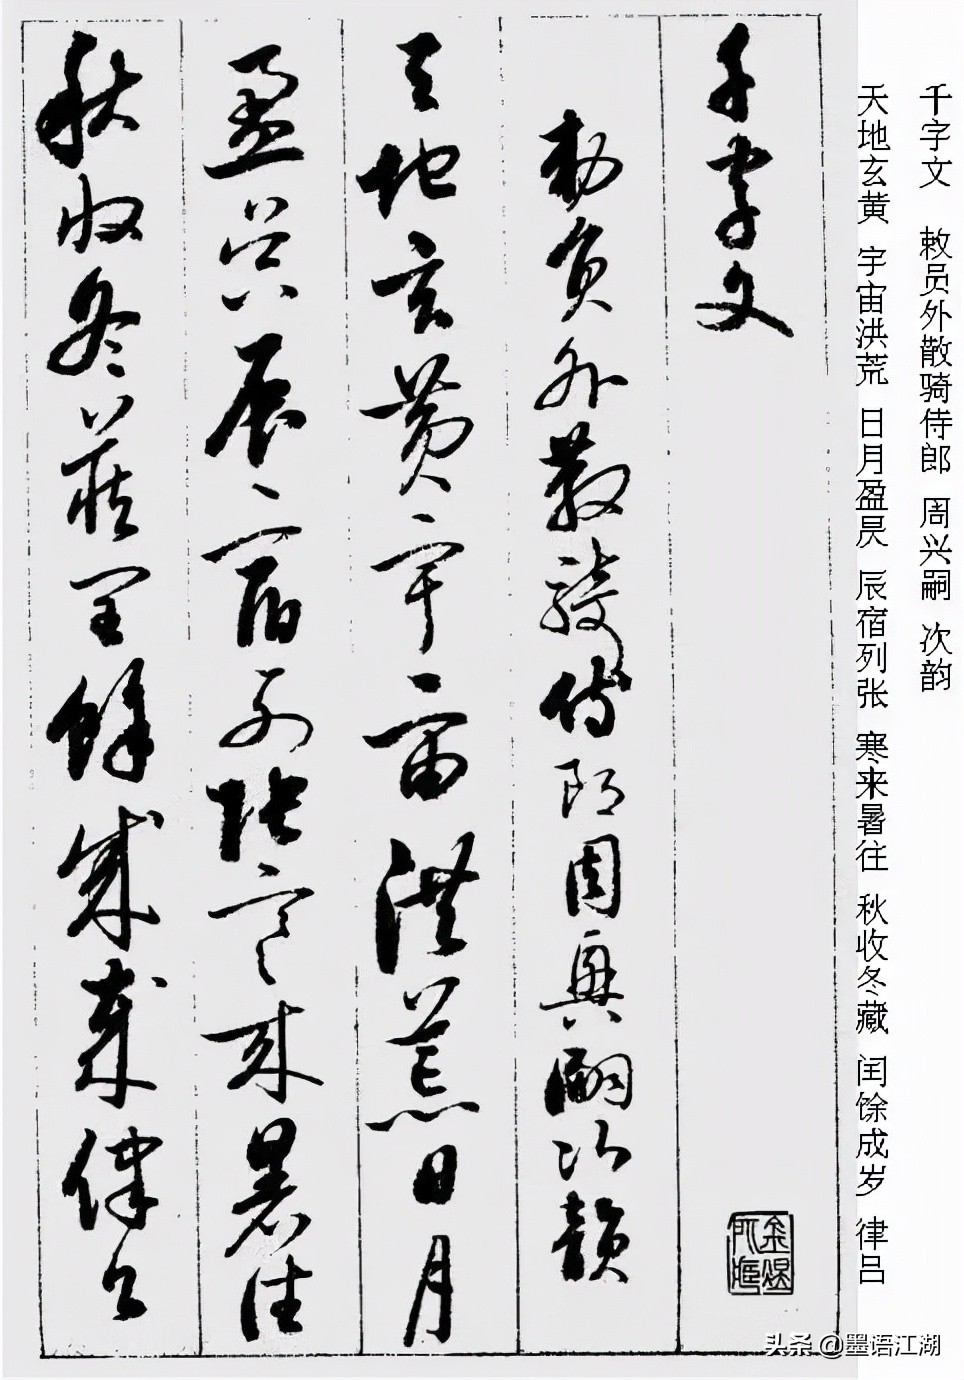 千字文 敕员外散骑侍郎 周兴嗣 次韵
天地玄黄 宇宙洪荒 日月盈昃 辰宿列张 寒来暑往 秋收冬藏 闰馀成岁 律吕
千字文
敕員外散騎侍郎周興嗣次韻
天地玄黃宇宙洪荒日月
盈昃辰宿列張寒來暑往
秋收冬藏閏餘成歲律呂
头条 @墨语江湖